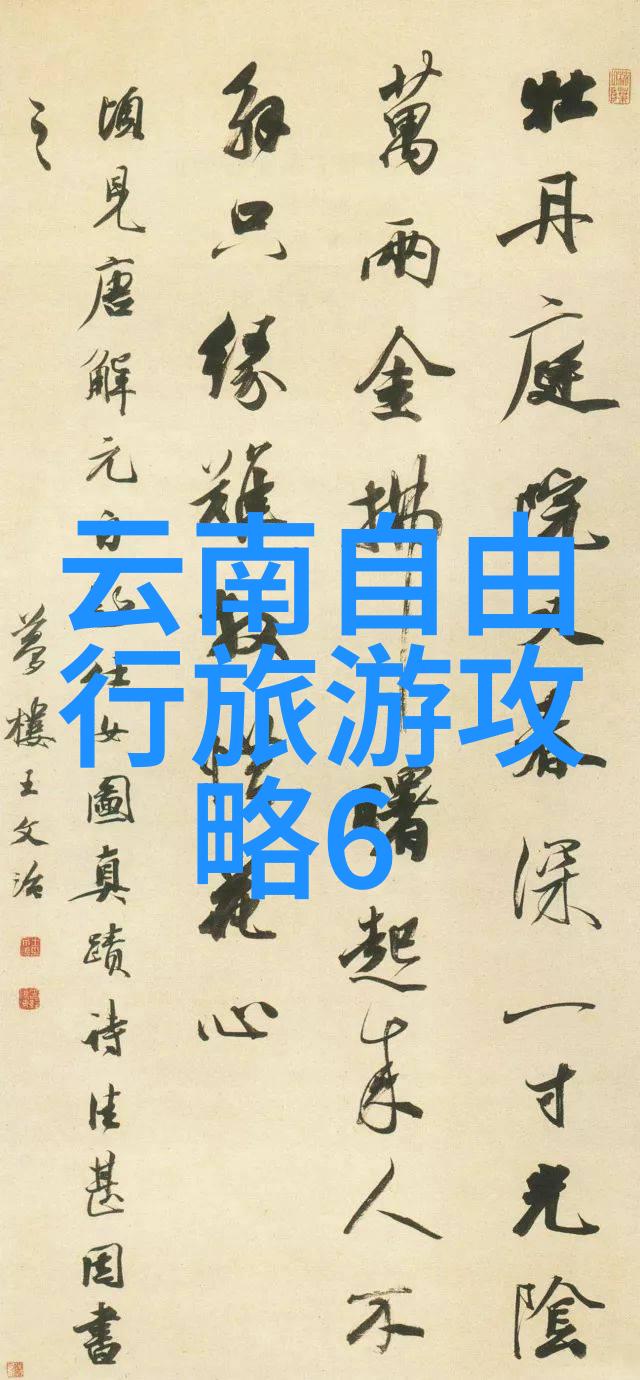 云南自由
行旅游攻
略6
牡丹庭院又春深一寸光陰
萬兩金拂曙起來人不
解只緣難放惜花心
頃見唐解元自仕女圖真蹟詩佳甚因書
之
夢樓王文治